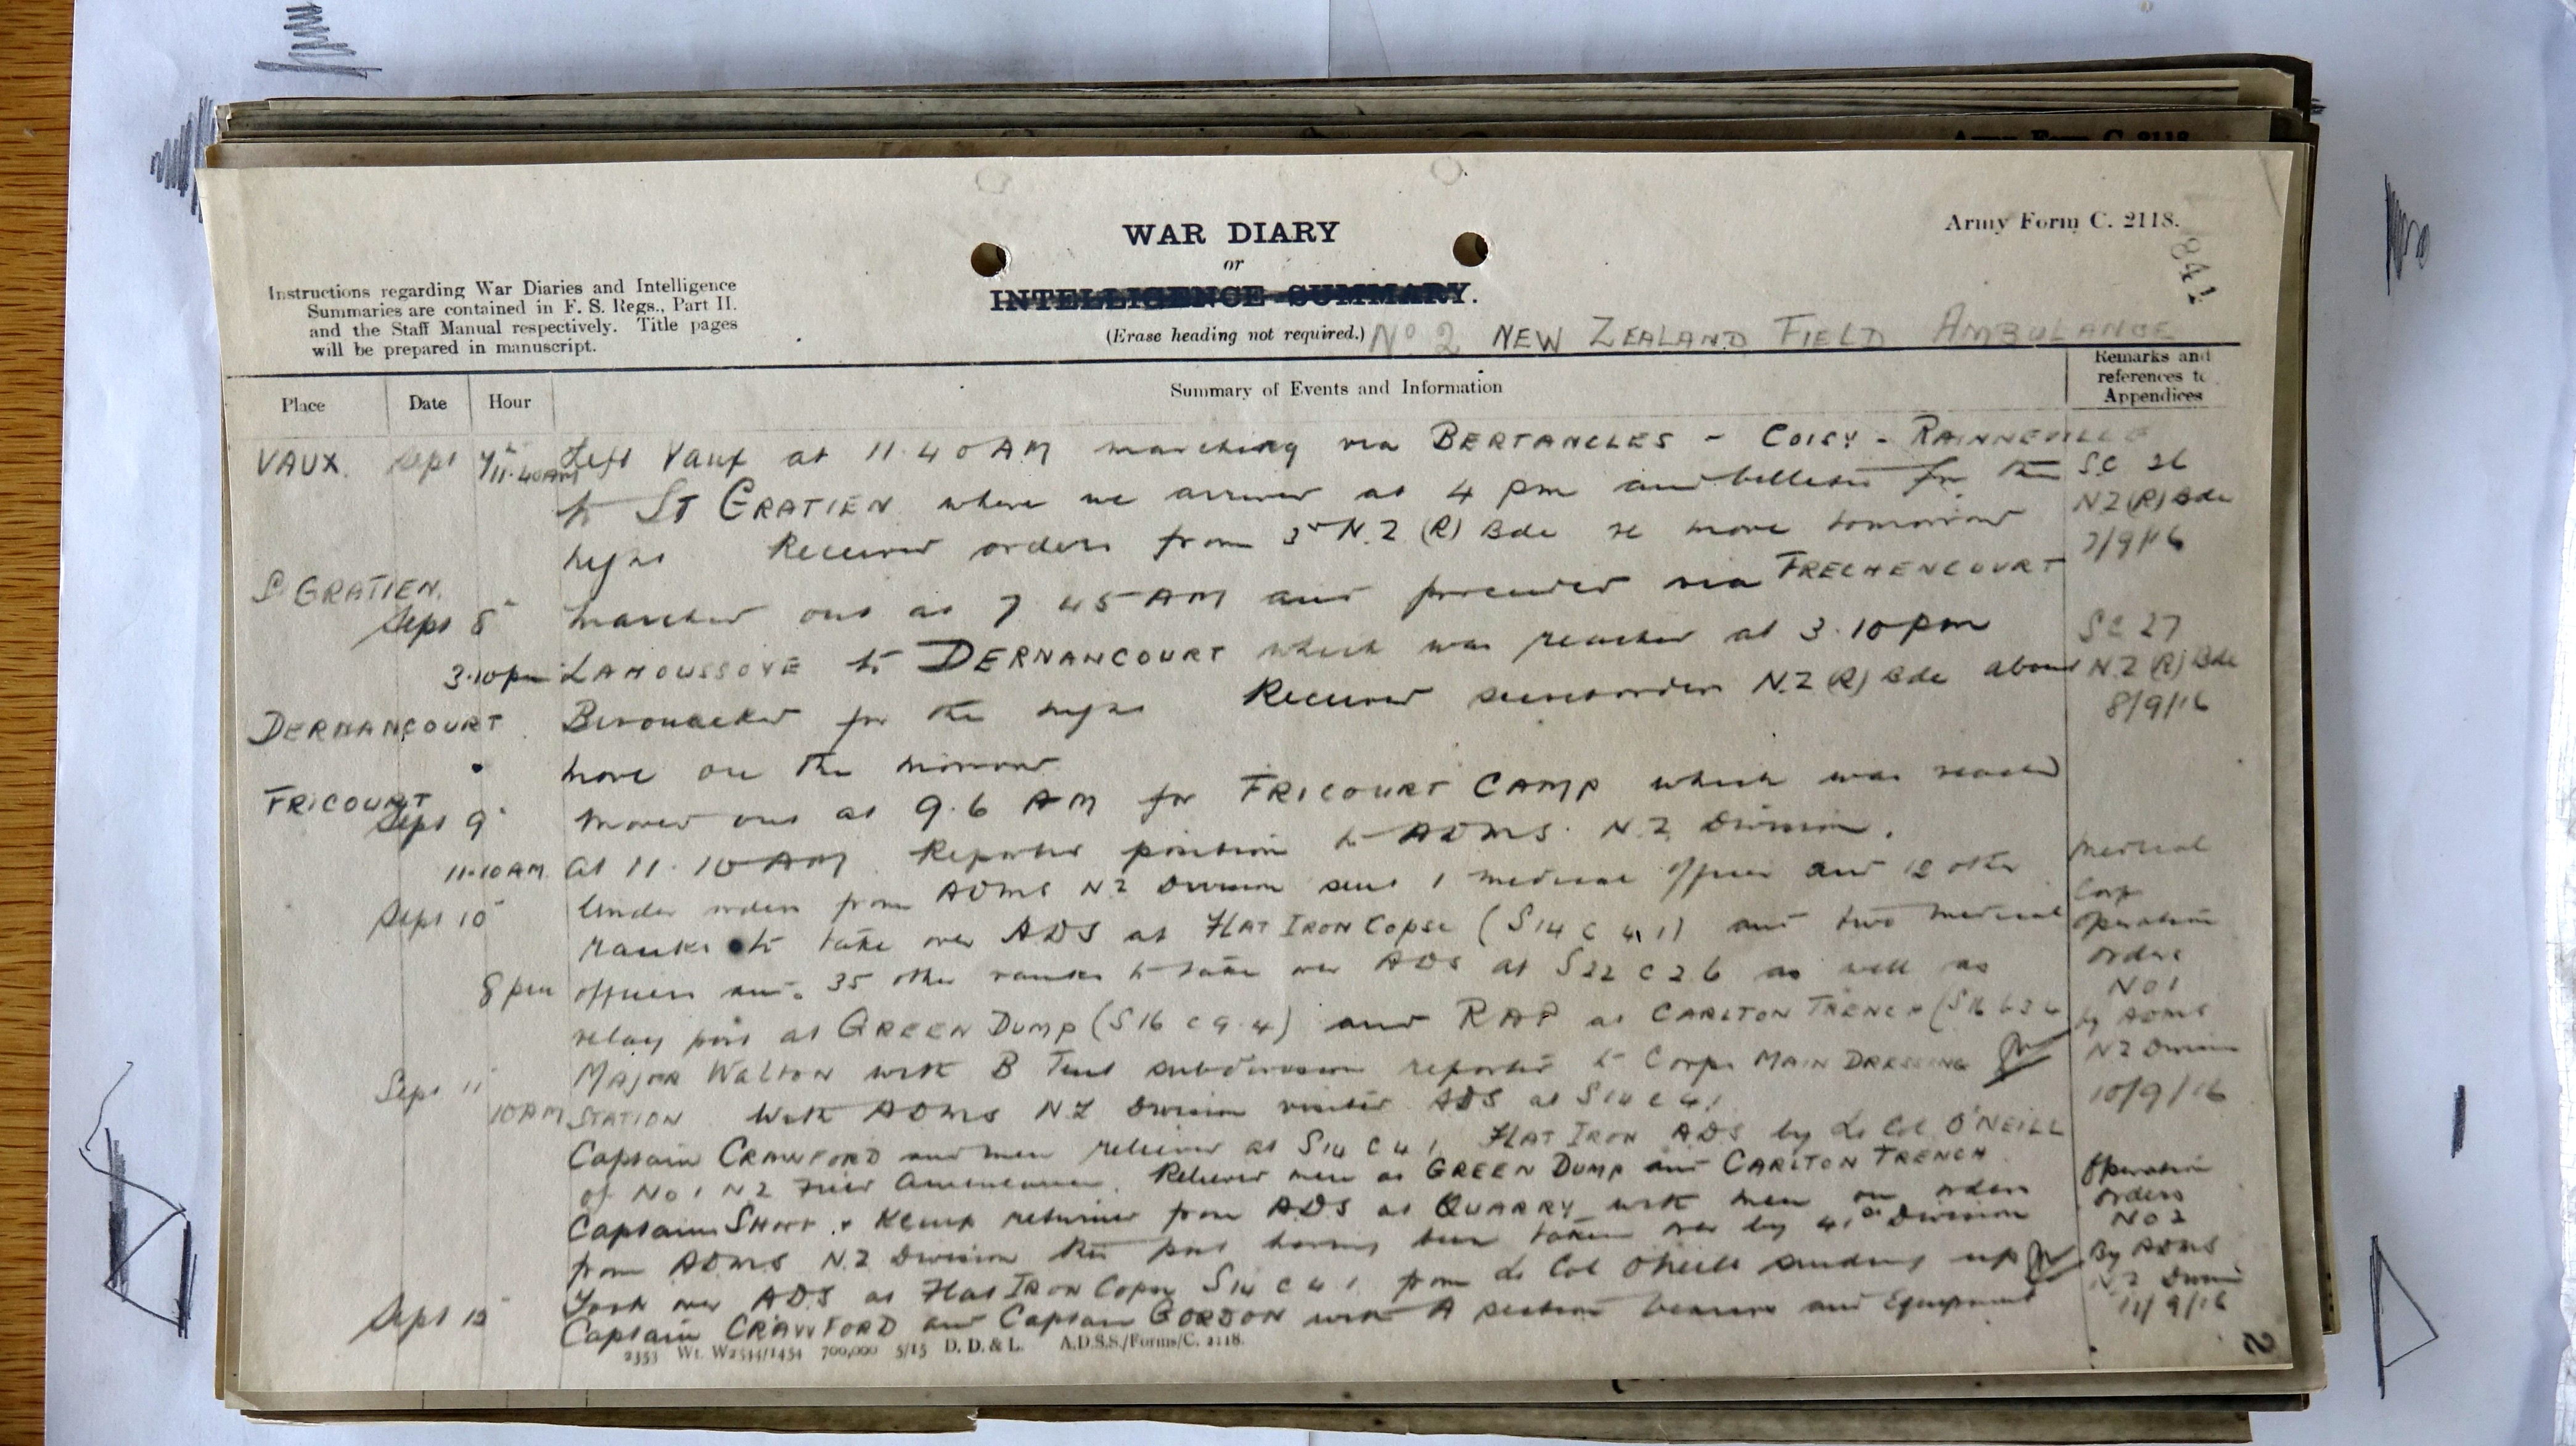 Army Form C. 2118
Army Form C. 2118.
841
WAR DIARY
or
INTELLIGENCE SUMMARY.
(Erase heading not required.)
No 2 NEW ZEALAND FIELD AMBULANCE
Instructions regarding War Diaries and Intelligence
Summaries are contained in F. S. Regs., Part II.
and the Staff Manual respectively. Title pages
will be prepared in manuscript.
Place Date Hour Summary of Events and Information Remarks and
references to
Appendices
VAUX. Sept 7th 11.40AM Left Vaux at 11.40 AM marching via BERTANGLES - COISY - RAINNEVILLE
to ST GRATIEN where we arrived at 4 pm and billeted for the SC 26
N Z (R) Bde
night Received orders from 3rd N.Z (R) Bde re move tomorrow 7/9/16
St GRATIEN.
Sept 8th Marched out at 7 45 AM and proceeded via FRECHENCOURT
3.10 pm LAHOUSSOYE to DERNANCOURT which was reached at 3.10 pm SC 27
DERNANCOURT Bivouacked for the night Received orders N.Z (R) Bde about N.Z (R) Bde
8/9/16
move on the morrow
FRICOURT
Sept 9th Moved out at 9.6 AM for FRICOURT CAMP which was reached
11.10 AM. at 11.10 AM Reported position to ADMS. N.Z Division.
Sept 10th Under orders from ADMS N Z Division sent 1 medical officer and 12 other Medical
Corp
ranks to take over ADS at FLAT IRON Copse (S14 c 4,1) and two medical operation
8 pm officers and 35 other ranks to take over ADS at S22 c 2 6 as well as orders
No 1
relay post at GREEN DUMP (S16 c 9.4) and RAP at CARLTON TRENCH (S16 b 3 4 by ADMS
Sept 11th Major Walton with B Tent subdivision reported to Corps MAIN DRESSING N Z Division
10 AM STATION With ADMS N Z Division visited ADS at S14 c 4 1 10/9/16
Captain CRAWFORD and men relieved at S14 c 4 1 FLAT IRON ADS by Lt Col O'NEILL
of No 1 N Z Field Ambulance. Relieved men at GREEN DUMP and CARLTON TRENCH Operation
Captains SHORT + Kemp returned from ADS at QUARRY with men on orders orders
No 2
from ADMS N.Z Division this post having been taken over by 41st Division By ADMS
Took over ADS at Flat IRON Copse S14 c 4 1 from Lt Col O'Neill sending up N Z Division
Sept 12th Captain CRAWFORD and Captain GORDON with A section bearers and Equipment 11/9/16
2353 Wt. W2544/1454 700,000 5/15 D. D. & L. A.D.S.S./Forms/C. 2118.